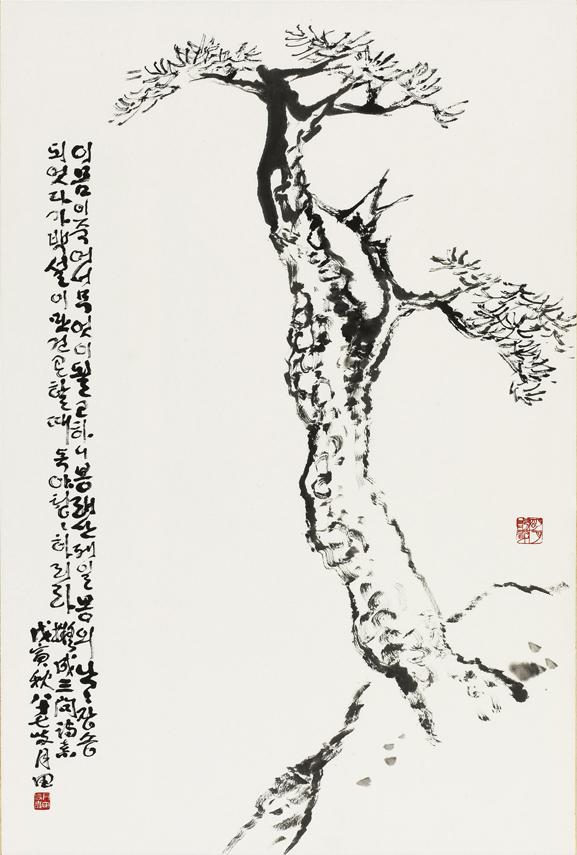 이몸이죽어서무엇이될고하니봉래산제일봉의낙〃장송
되엇다가백설이만건곤할때독야청〃하리라 擬成三問詩意
戊寅秋八七歲月田